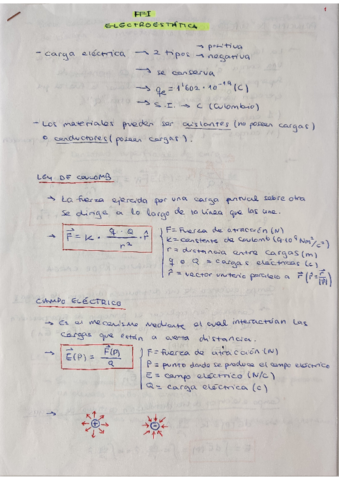 1
FFI
ELECTROESTÁTICA
- carga eléctrica → 2 tipos → positiva
→ negativa
→ se conserva
→ qe = 1'602 · 10⁻¹⁹ (C)
→ S.I. → C (Culombio)
- Los materiales pueden ser aislantes (no poseen cargas)
o conductores (poseen cargas).
LEY DE COULOMB
→ La fuerza ejercida por una carga puntual sobre otra
se dirige a lo largo de la línea que las une.
→ F = K · q · Q / r² · r̂
F = Fuerza de atracción (N)
K = constante de Coulomb (9·10⁹ Nm²/C²)
r = distancia entre cargas (m)
q o Q = cargas eléctricas (C)
r̂ = vector unitario paralelo a r⃗
CAMPO ELÉCTRICO
→ Es el mecanismo mediante el cual interactúan las
cargas que están a cierta distancia.
→ E⃗(P) = F⃗(P) / Q
F = fuerza de atracción (N)
P = punto donde se produce el campo eléctrico
E = campo eléctrico (N/C)
Q = carga eléctrica (C)
→ + -